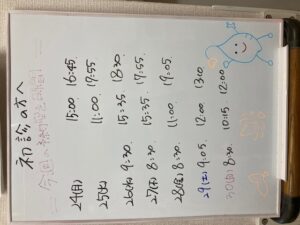 初診の方へ
24(月) 15:00 16:45
25(火) 11:00 17:55
26(水) 9:30 15:35 18:30
27(木) 8:30 15:35 17:55
28(金) 8:30 11:00 19:05
29(土) 9:05 12:00 13:10
30(日) 8:30 10:15 12:00